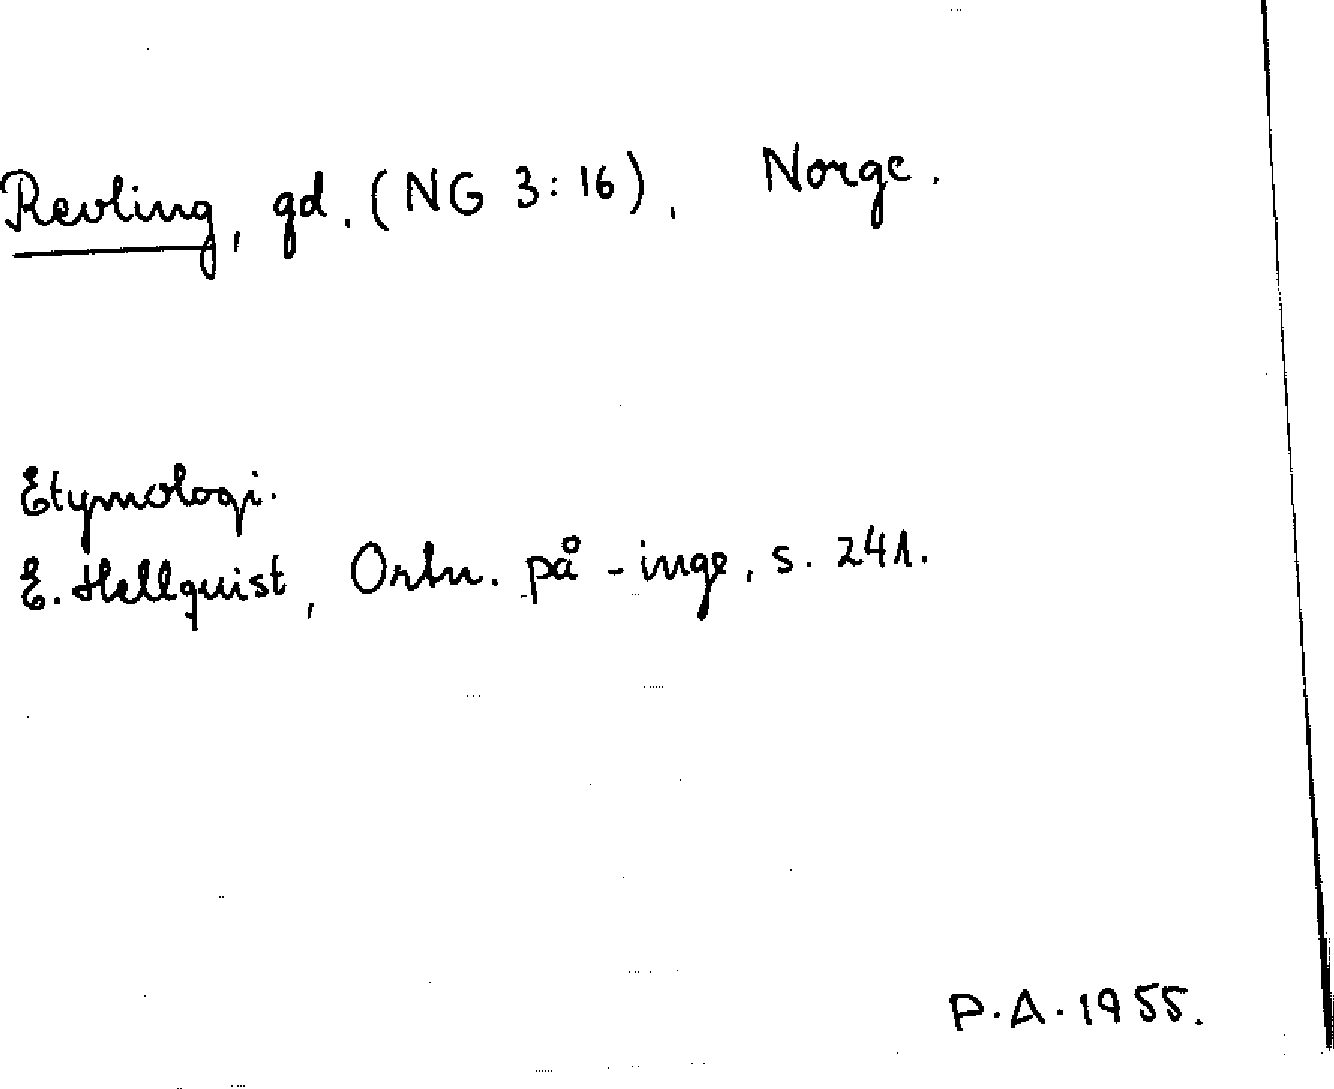 Revling, gd. (NG 3:16), Norge.
Etymologi.
E. Hellquist, Ortn. på -inge, s. 241.
P.A. 1955.